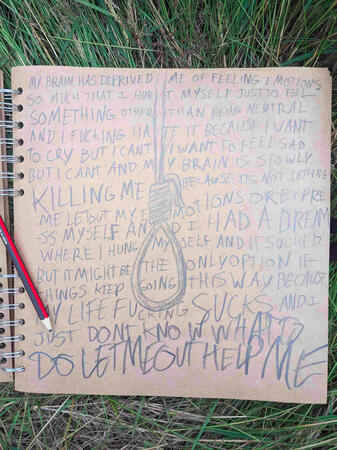 MY BRAIN HAS DEPRIVED ME OF FEELING EMOTIONS
SO MUCH THAT I HURT MYSELF JUST TO FEEL
SOMETHING OTHER THAN BEING NEUTRAL
AND I FUCKING HATE IT BECAUSE I WANT
TO CRY BUT I CANT I WANT TO FEEL SAD
BUT I CANT AND MY BRAIN IS SLOWLY
KILLING ME BECAUSE ITS NOT LETING
ME LET OUT MY EMOTIONS OR EXPRE
-SS MYSELF AND I HAD A DREAM
WHERE I HUNG MYSELF AND IT SUCKED
BUT IT MIGHT BE THE ONLY OPTION IF
THINGS KEEP GOING THIS WAY BECAUSE
MY LIFE FUCKING SUCKS AND I
JUST DONT KNOW WHAT TO
DO LET ME OUT HELP ME